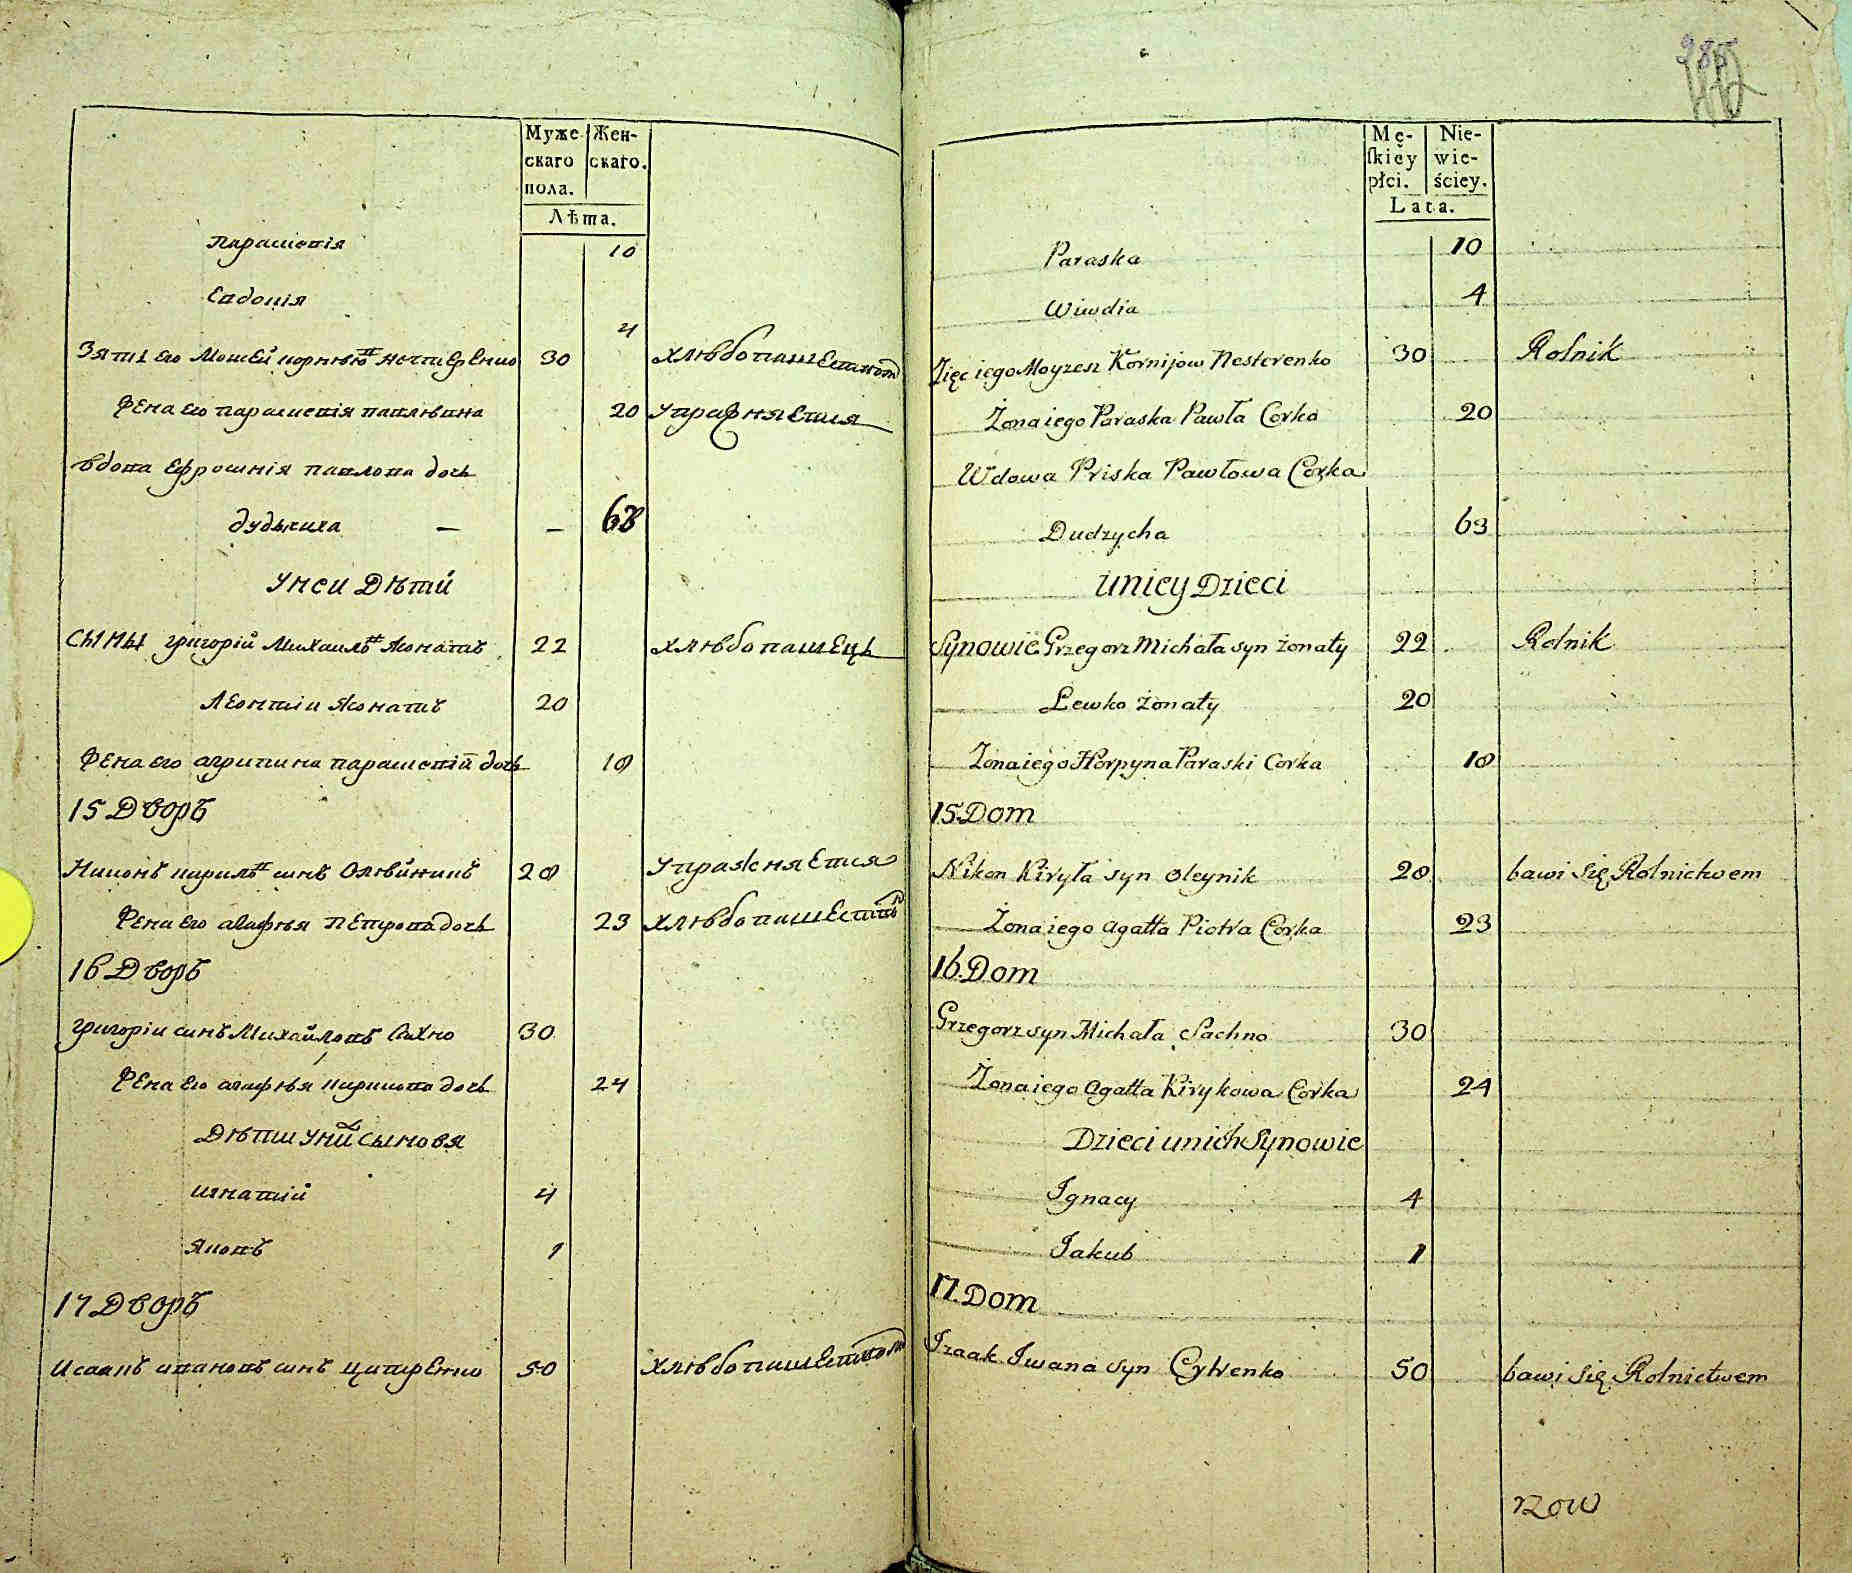 Муже-
скаго
пола.
Жен-
скаго.
Лѣта.
Параскевія 10
Евдокія 4
Зять его Мойсей Корнѣювъ Нестеренко 30 Хлѣбопашествомъ
Жена его Параскевія Павлѣвна 20 упражняется
Вдова Ефросинія Павлова дочь
Дудчиха — — 68
У неи Дѣтій
Сыны Григорій Михаилъ женатъ 22 Хлѣбопашецъ
Леонтіи женатъ 20
Жена его Агрипина Параскевій дочь 18
15 Дворъ
Никонъ Кирилъ синъ Олѣйникъ 28 Упражняется
Жена его Агафья Петрова дочь 23 Хлѣбопашествомъ
16 Дворъ
Григоріи синъ Михайловъ Сахно 30
Жена его Агафья Кирикова дочь 24
Дѣти у ний Сыновя
Игнатій 4
Яковъ 1
17 Дворъ
Исаакъ Ивановъ синъ Цитренко 50 Хлѣбопашествомъ
Mę-
ſkiéy
płci.
Nie-
wie-
ściey.
Lata.
Paraska 10
Wiwdia 4
Zięc iego Moyzesz Kornijow Nesterenko 30 Rolnik
Żona iego Paraska Pawła Corka 20
Wdowa Priska Pawłowa Corka
Dudzycha 63
U niey Dzieci
Synowie Grzegorz Michała syn żonaty 22 Rolnik
Lewko żonaty 20
Żona iego Horpyna Paraski Corka 18
15. Dom
Nikon Kiryła syn Oleynik 28 bawi się Rolnictwem
Żona iego Agatta Piotra Corka 23
16. Dom
Grzegorz syn Michała Sachno 30
Żona iego Agatta Kirykowa Corka 24
Dzieci u nich Synowie
Ignacy 4
Jakub 1
17. Dom
Izaak Iwana syn Cytrenko 50 bawi się Rolnictwem